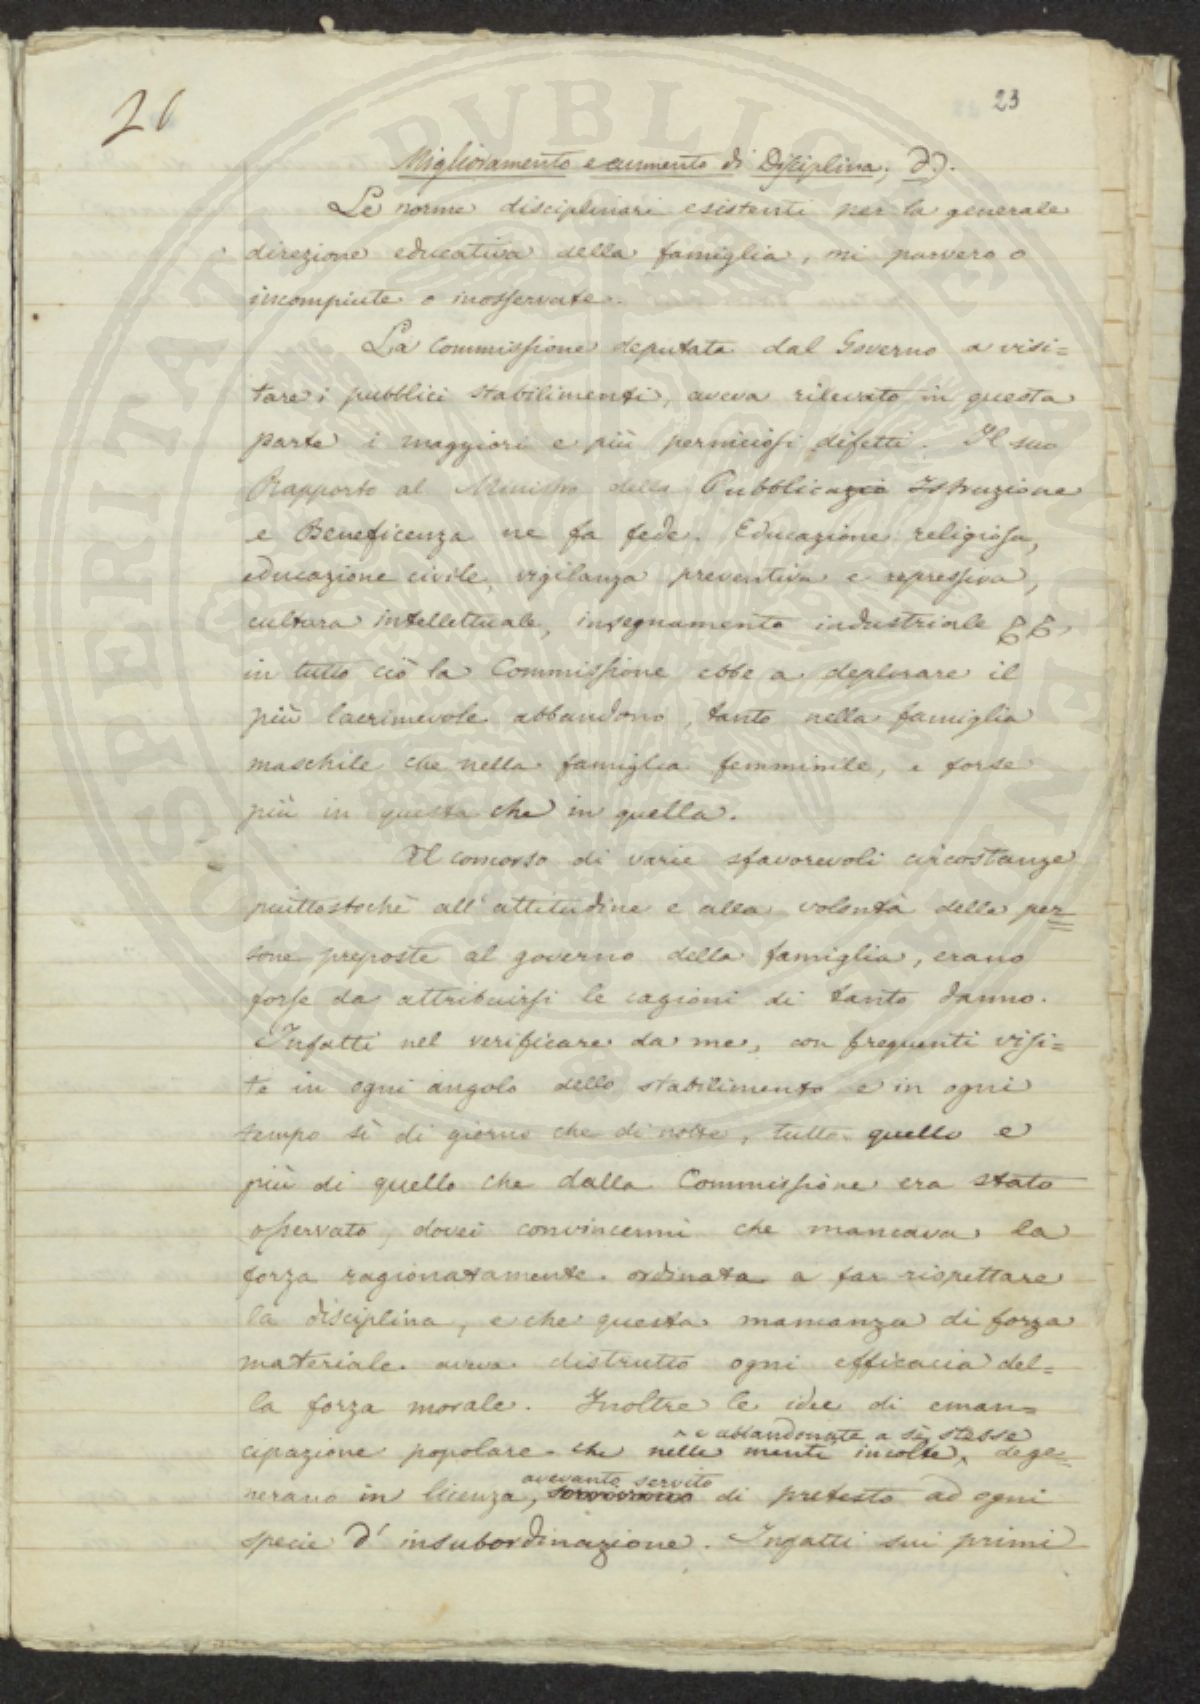 26
23
Miglioramento e aumento di Disciplina, d).
Le norme disciplinari esistenti per la generale
direzione educativa della famiglia, mi parvero o
incompiute o inosservate.
La Commissione deputata dal Governo a visi=
tare i pubblici stabilimenti, aveva rilevato in questa
parte i maggiori e più perniciosi difetti. Il suo
Rapporto al Ministro della Pubblica Istruzione
e Beneficenza ne fa fede. Educazione religiosa,
educazione civile, vigilanza preventiva e repressiva,
cultura intellettuale, insegnamento industriale
in tutto ciò la Commissione ebbe a deplorare il
più lacrimevole abbandono, tanto nella famiglia
maschile che nella famiglia femminile, e forse
più in questa che in quella.
Al concorso di varie sfavorevoli circostanze
piuttostochè all'attitudine e alla volontà delle per=
sone preposte al governo della famiglia, erano
forse da attribuirsi le cagioni di tanto danno.
Infatti nel verificare da me, con frequenti visi=
te in ogni angolo dello stabilimento e in ogni
tempo sì di giorno che di notte, tutto quello e
più di quello che dalla Commissione era stato
osservato, dovei convincermi che mancava la
forza ragionatamente ordinata a far rispettare
la disciplina, e che questa mancanza di forza
materiale aveva distrutto ogni efficacia del=
la forza morale. Inoltre le idee di eman=
e abbandonate a sè stesse
cipazione popolare che nelle menti incolte, dege=
avevanto servito
nerano in licenza, di pretesto ad ogni
specie d'insubordinazione. Infatti sui primi
PROSPERITATI PVBLICAE AVGENDAE